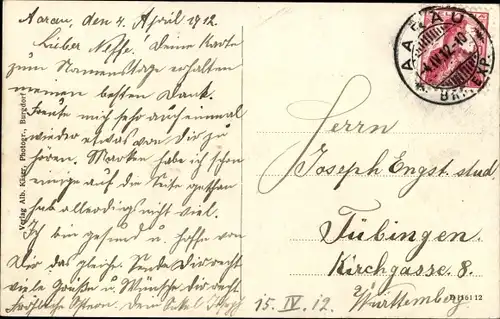 Aarau, den 4. April 1912
Lieber Neffe! Deine Karte
zum Namenstage erhalten
meinen besten Dank.
Freute mich sehr auch einmal
wieder etwas von Dir zu
hören. Marken habe ich schon
einige auf die Seite gethan
hab allerdings nicht viel.
Ich bin gesund u. hoffe von
Dir das gleiche. Sende Dir recht
viele Grüße u. Wünsche Dir recht
fröhliche Ostern. Dein Onkel
Verlag Alb. Klarer, Photogr., Burgdorf
AARAU
BRF. EXP.
Herrn
Joseph Engst. stud.
Tübingen.
Kirchgasse 8.
Württemberg.
15. IV. 12.